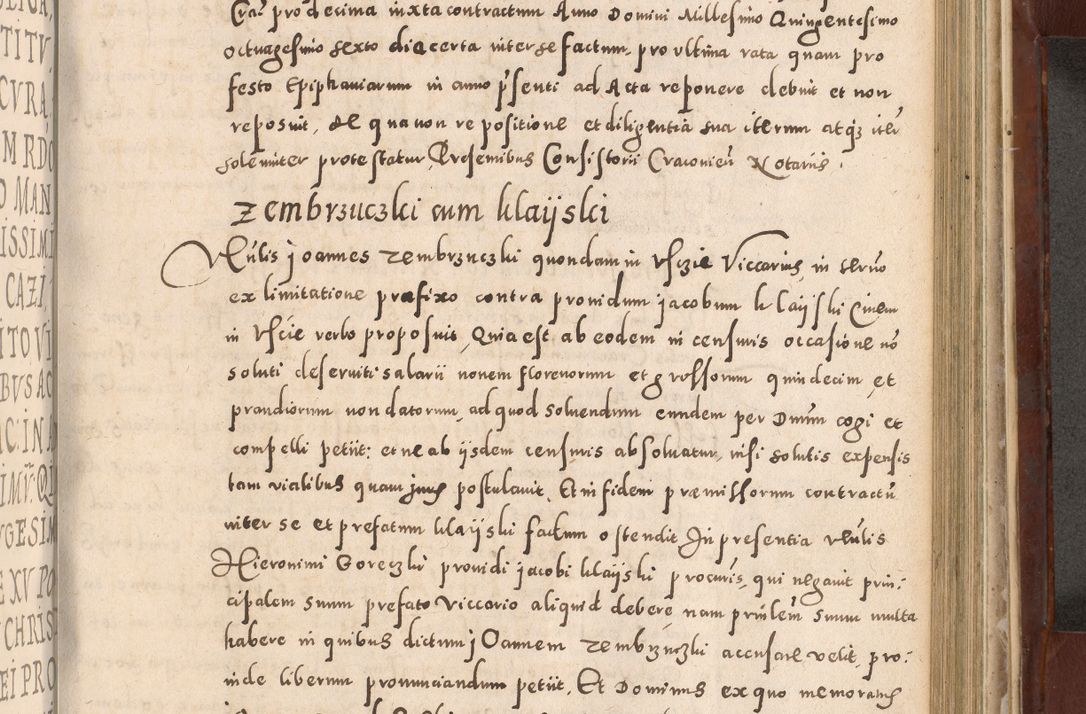 Craẽ pro decima iuxta contractum Anno Domini Millesimo Quingentesimo
octuagesimo sexto die certa inter se factum, pro ultima rata quam pro
festo Epiphaniarum in anno pñsenti ad Acta reponere debuit et non
reposuit, de qua non repositione et diligentia sua iterum atq3 iteř
solemniter protestatur Presentibus Consistorii Cracovieñ Notariis.
Zembrzuczki cum Klaijski
Vẽnlis Joannes Zembrznczki quondam in Usczie Viccarius in termõ
ex limitatione prefixo contra providum Jacobum Klaijski Civem
in Uscie verbo proposuit, Quia est ab eodem in censuris occasione nõ
soluti deserviti salarii nonem florenorum et grossorum quindecim et
prandiorum non datorum, ad quod solvendum eundem per Dnũm cogi et
compelli petiit: et ne ab ijsdem censuris absolvatur, nisi solutis expensis
tam vialibus quam juris postulavit. Et in fidem præmissorum contractũ
inter se et prefatum Klaijski factum ostendit In presentia vẽnlis
Hieronimi Goreczki providi Jacobi Klaijski procuřis, qui negavit prin:
cipalem suum prefato Viccario aliquid debere nam prinlem̃ suum multa
habere in quibus dictum Joannem Zembrznczki accusare velit, pro:
inde liberum pronunciandum petiit, Et Dominus ex quo memoratus